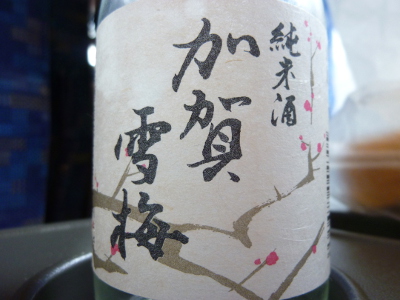 純米酒
加賀
雪梅